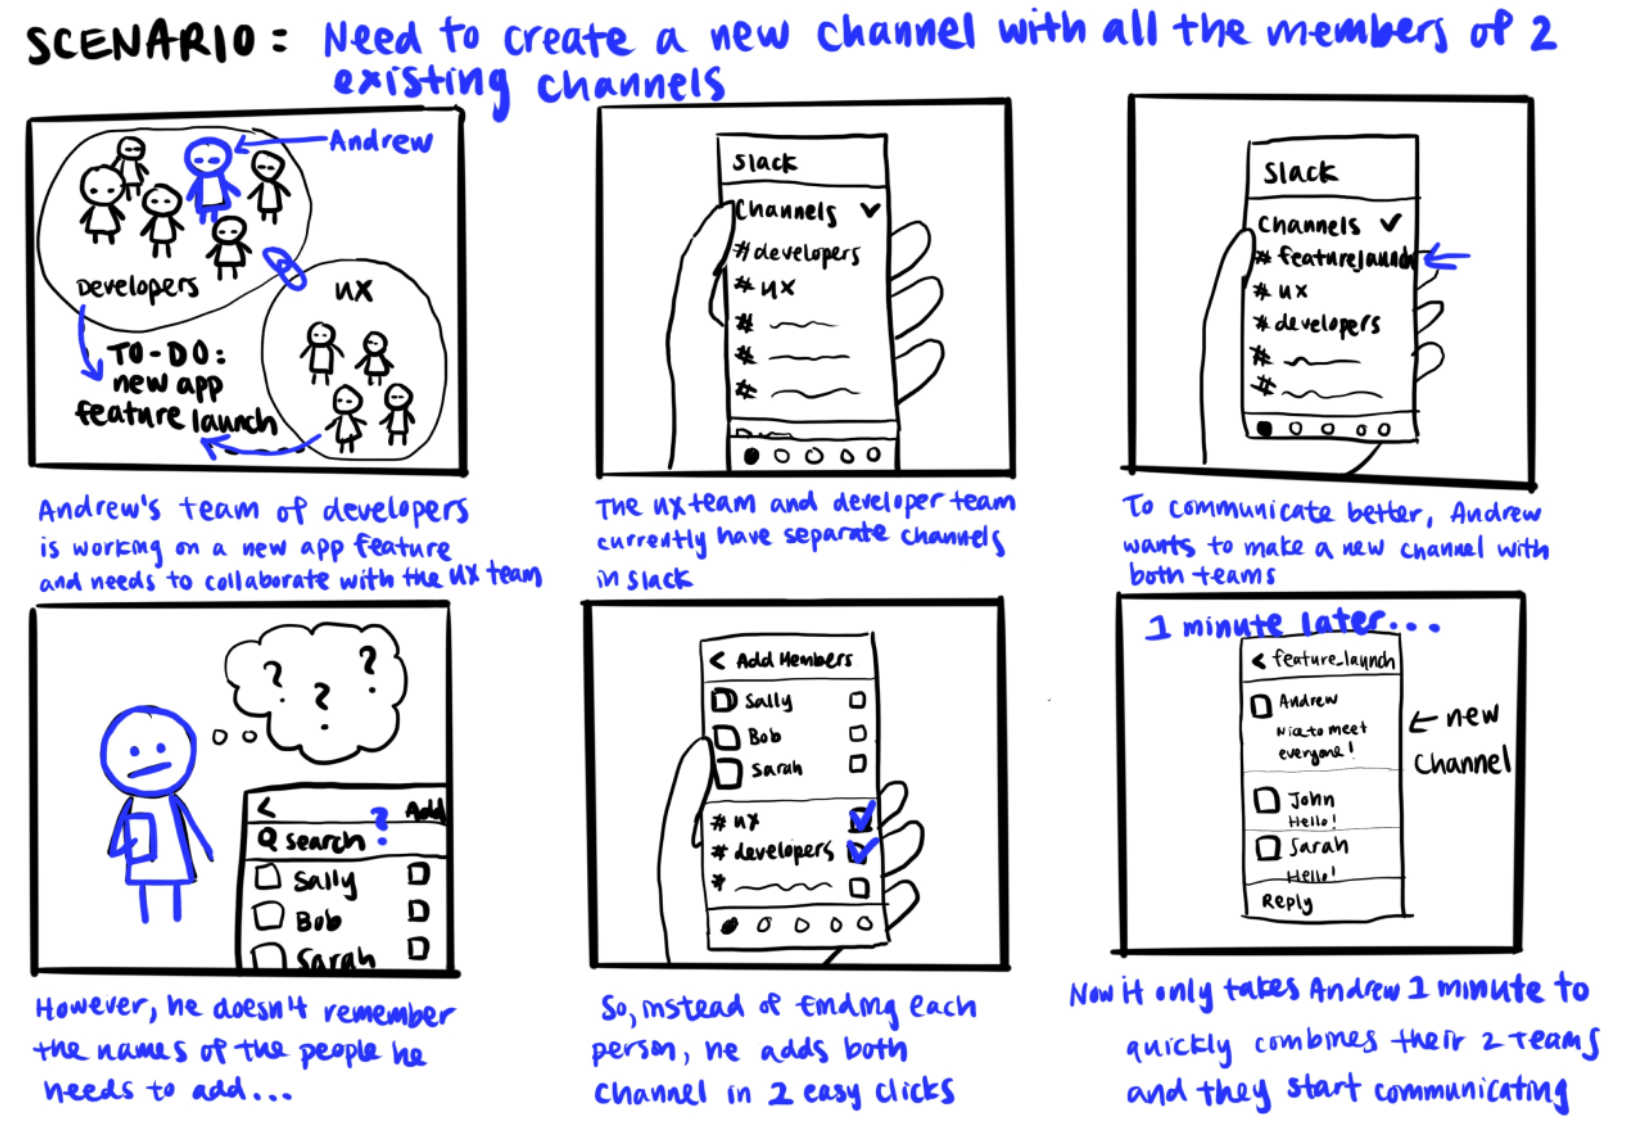 SCENARIO: Need to create a new channel with all the members of 2
existing channels
Andrew
Developers
UX
TO-DO:
new app
feature launch
Andrew's team of developers
is working on a new app feature
and needs to collaborate with the UX team
Slack
Channels
# developers
# UX
#
#
#
The UX team and developer team
currently have separate channels
in Slack
Slack
Channels
# feature_launch
# UX
# developers
#
#
To communicate better, Andrew
wants to make a new channel with
both teams
? ? ?
< Add
Search ?
Sally
Bob
Sarah
However, he doesn't remember
the names of the people he
needs to add...
< Add Members
Sally
Bob
Sarah
# UX
# developers
#
So, instead of finding each
person, he adds both
channel in 2 easy clicks
1 minute later...
< feature_launch
Andrew
Nice to meet
everyone!
John
Hello!
Sarah
Hello!
Reply
← new
channel
Now it only takes Andrew 1 minute to
quickly combines their 2 teams
and they start communicating